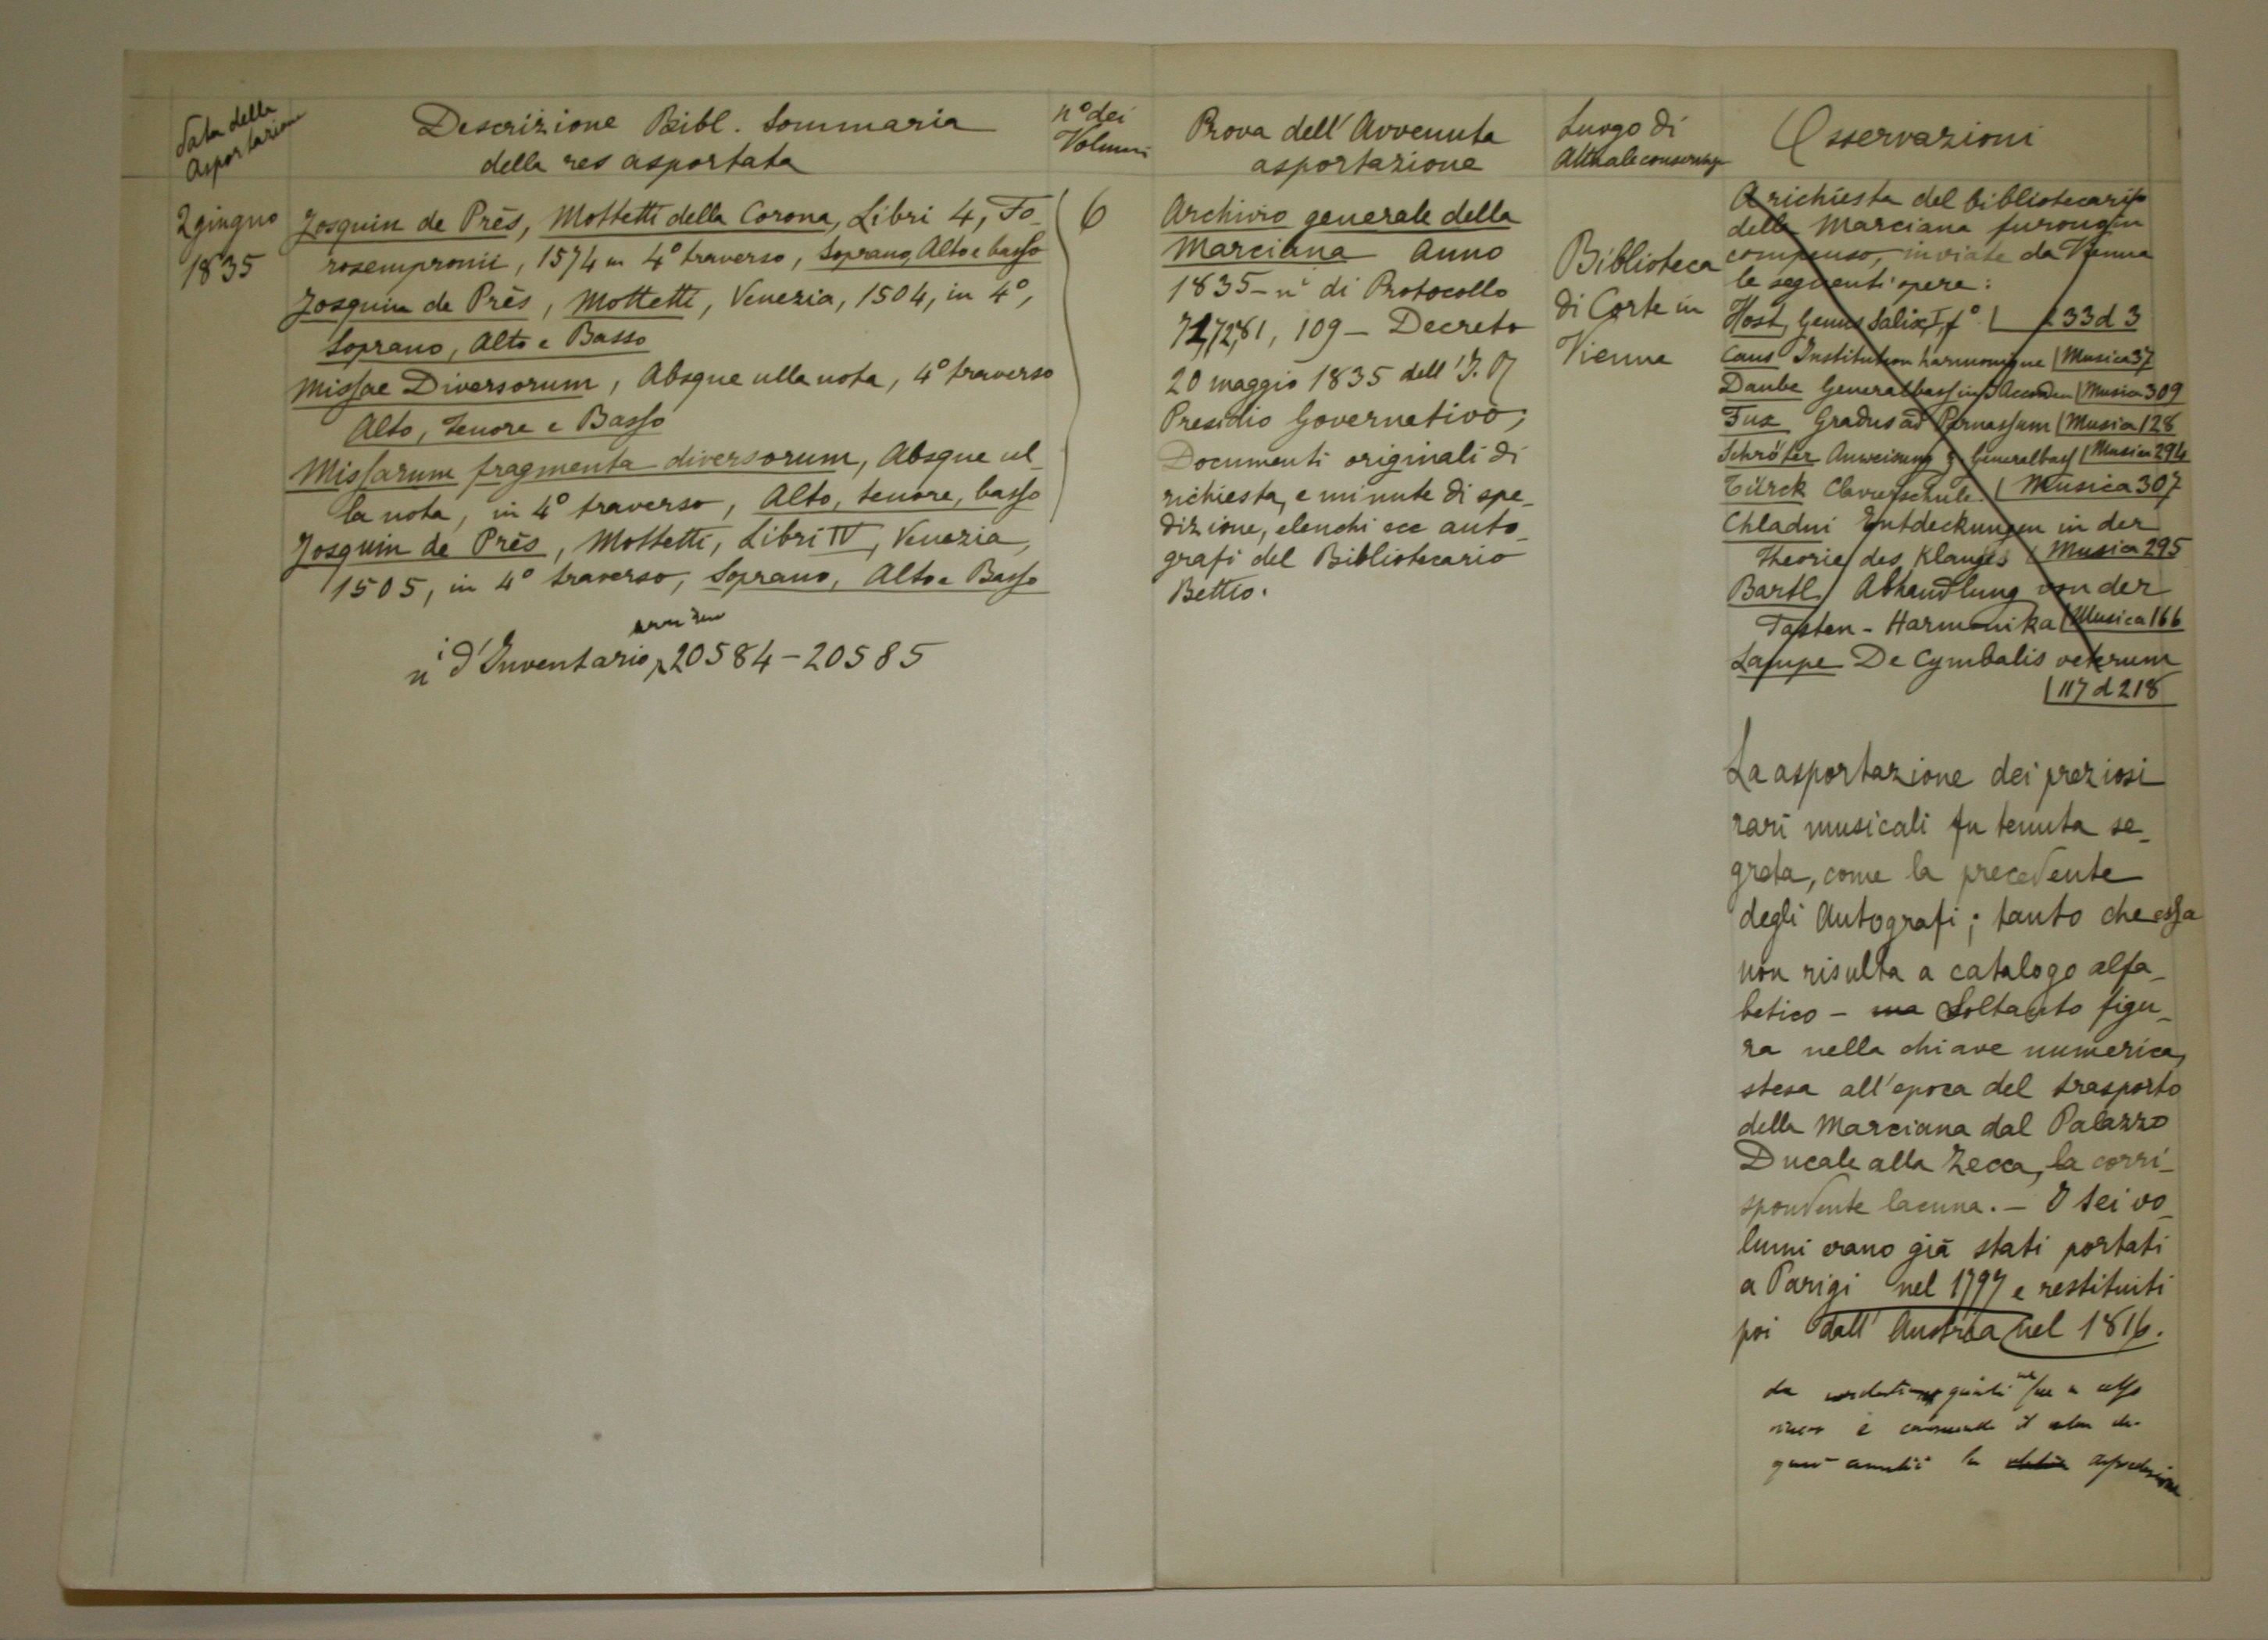 Data della
Asportazione
Descrizione Bibl. Sommaria
della res asportata
n° dei
Volumi
Prova dell'Avvenuta
asportazione
Luogo di
Osservazioni
2 giugno
1835
Josquin de Près, Mottetti della Corona, Libri 4, Fo-
rosempronii, 1574 in 4° traverso, Soprano, Alto e basso
Josquin de Près, Mottetti, Venezia, 1504, in 4°,
Soprano, Alto e Basso
Missae Diversorum, Absque ulla nota, 4° traverso
Alto, Tenore e Basso
Missarum fragmenta diversorum, Absque ul-
la nota, in 4° traverso, Alto, tenore, basso
Josquin de Près, Mottetti, Libri IV, Venezia,
1505, in 4° traverso, Soprano, Alto e Basso
n i d'Inventario, 20584-20585
6
Archivio generale della
Marciana Anno
1835 - n° di Protocollo
109 - Decreto
20 maggio 1835 dell'I. R
Presidio Governativo;
Documenti originali di
richiesta, e minute di spe-
dizione, elenchi ecc auto-
grafi del Bibliotecario
Bettio.
Biblioteca
di Corte in
Vienna
A richiesta del bibliotecario
della Marciana furono, in
compenso, inviate da Vienna
le seguenti opere:
Host, Genus Salix, I f° 233 d 3
Caus Institution harmonique Musica 37
Daube Generalbass in 3 Accorden Musica 309
Fux Gradus ad Parnassum Musica 128
Schröter Anweisung z Generalbass Musica 294
Türck Clavierschule Musica 307
Chladni Entdeckungen in der
Theorie des Klanges Musica 295
Bartl Abhandlung von der
Tasten-Harmonika Musica 166
Lampe De Cymbalis veterum
117 d 218
La asportazione dei preziosi
rari musicali fu tenuta se-
greta, come la precedente
degli Autografi; tanto che essa
non risulta a catalogo alfa-
betico - ma Soltanto figu-
ra nella chiave numerica,
stesa all'epoca del trasporto
della Marciana dal Palazzo
Ducale alla Zecca, la corri-
spondente lacuna. - I sei vo-
lumi erano già stati portati
a Parigi nel 1797 e restituiti
poi dall'Austria nel 1816.
da
è il
la